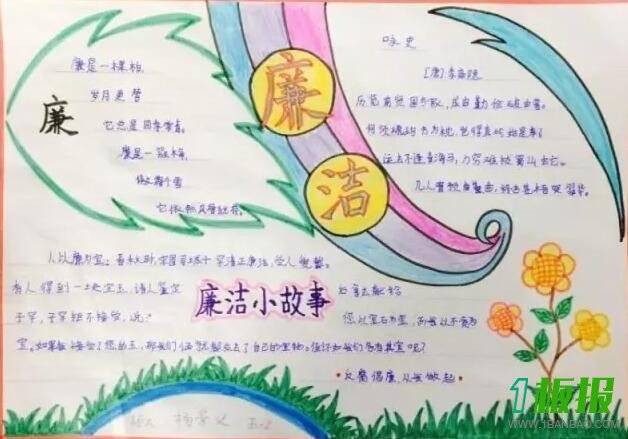 廉
廉是一棵柏
岁月更替
它总是四季常青。
廉是一冠梅
傲霜
它依然
廉
洁
咏史
[唐]李商隐
历览前贤国与家,成由勤俭破由奢。
何须琥珀方为枕,岂得真珠始是车?
运去不逢青海马,力穷难拔蜀山蛇。
几人曾预南薰曲,终古苍梧哭翠华。
人以廉为宝:春秋时,宋国司城子罕清正廉洁,受人爱戴。
有人得到一块宝玉,请人鉴定
后拿去献给
廉洁小故事
子罕,子罕拒不接受,说:"
您以宝石为宝,而我以不贪为
宝。如果我接受了您的玉,那我们俩就都失去了自己的宝物。倒不如我们各有其宝呢?
反腐倡廉,从我做起
五-2
1板报
WWW.1BANBAO.COM